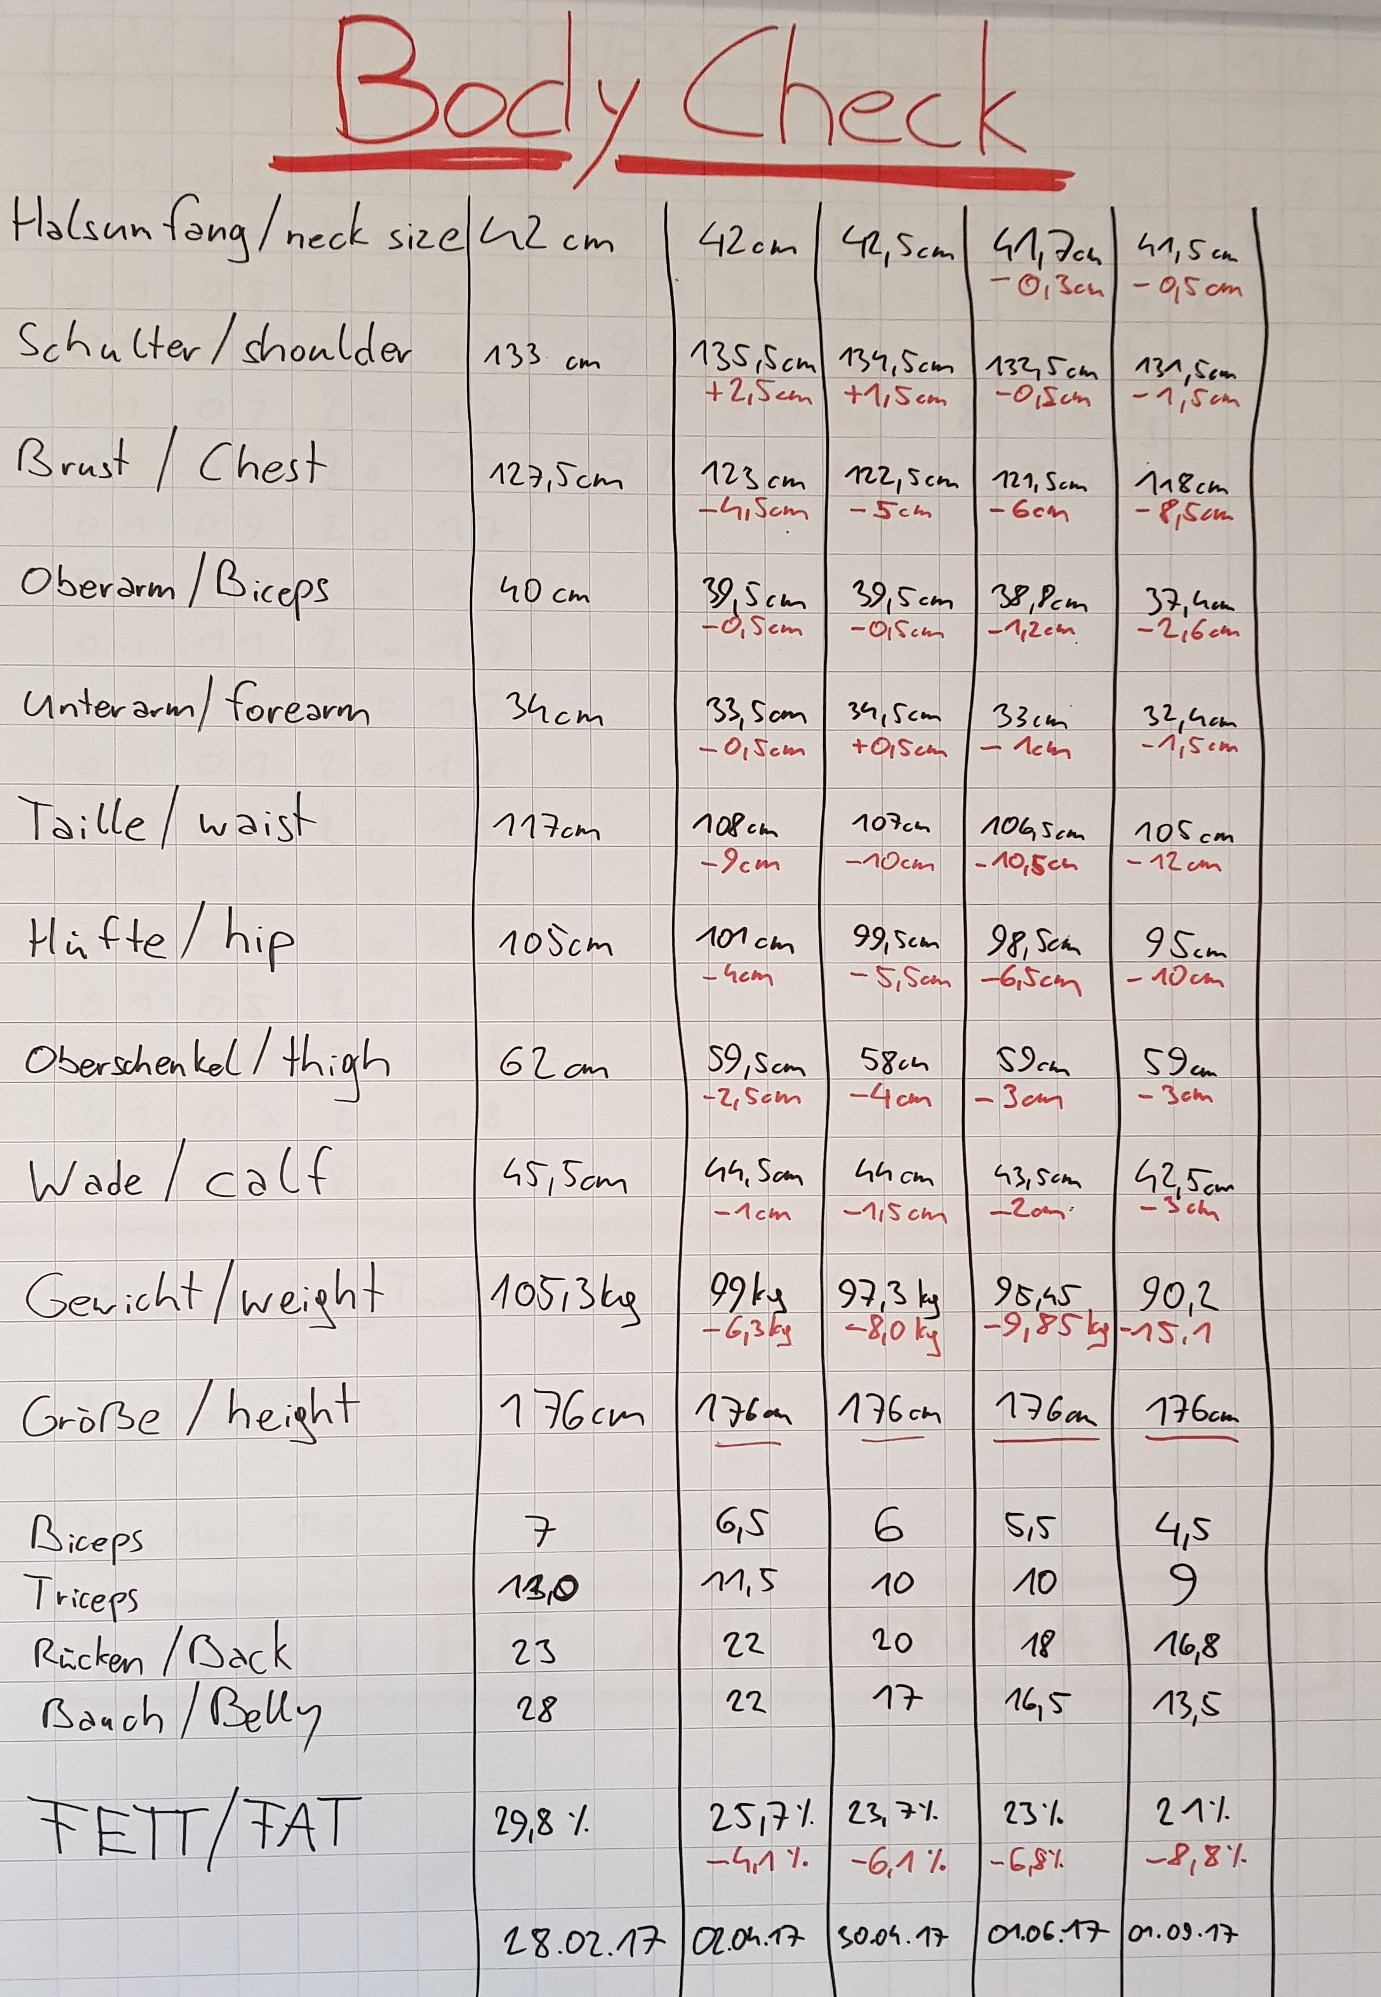 Body Check
Halsumfang/neck size 42 cm 42cm 42,5cm 41,7cm 41,5cm
-0,3cm -0,5cm
Schulter/shoulder 133 cm 135,5cm 134,5cm 132,5cm 131,5cm
+2,5cm +1,5cm -0,5cm -1,5cm
Brust / Chest 127,5cm 123cm 122,5cm 121,5cm 118cm
-4,5cm -5cm -6cm -8,5cm
Oberarm/Biceps 40cm 39,5cm 39,5cm 38,8cm 37,4cm
-0,5cm -0,5cm -1,2cm -2,6cm
Unterarm/forearm 34cm 33,5cm 34,5cm 33cm 32,4cm
-0,5cm +0,5cm -1cm -1,5cm
Taille/waist 117cm 108cm 107cm 106,5cm 105cm
-9cm -10cm -10,5cm -12cm
Hüfte/hip 105cm 101cm 99,5cm 98,5cm 95cm
-4cm -5,5cm -6,5cm -10cm
Oberschenkel/thigh 62cm 59,5cm 58cm 59cm 59cm
-2,5cm -4cm -3cm -3cm
Wade/calf 45,5cm 44,5cm 44cm 43,5cm 42,5cm
-1cm -1,5cm -2cm -3cm
Gewicht/weight 105,3kg 99kg 97,3kg 95,45 90,2
-6,3kg -8,0kg -9,85kg -15.1
Größe/height 176cm 176cm 176cm 176cm 176cm
Biceps 7 6,5 6 5,5 4,5
Triceps 13,0 11,5 10 10 9
Rücken/Back 23 22 20 18 16,8
Bauch/Belly 28 22 17 16,5 13,5
FETT/FAT 29,8% 25,7% 23,7% 23% 21%
-4,1% -6,1% -6,8% -8,8%
28.02.17 02.04.17 30.04.17 01.06.17 01.09.17